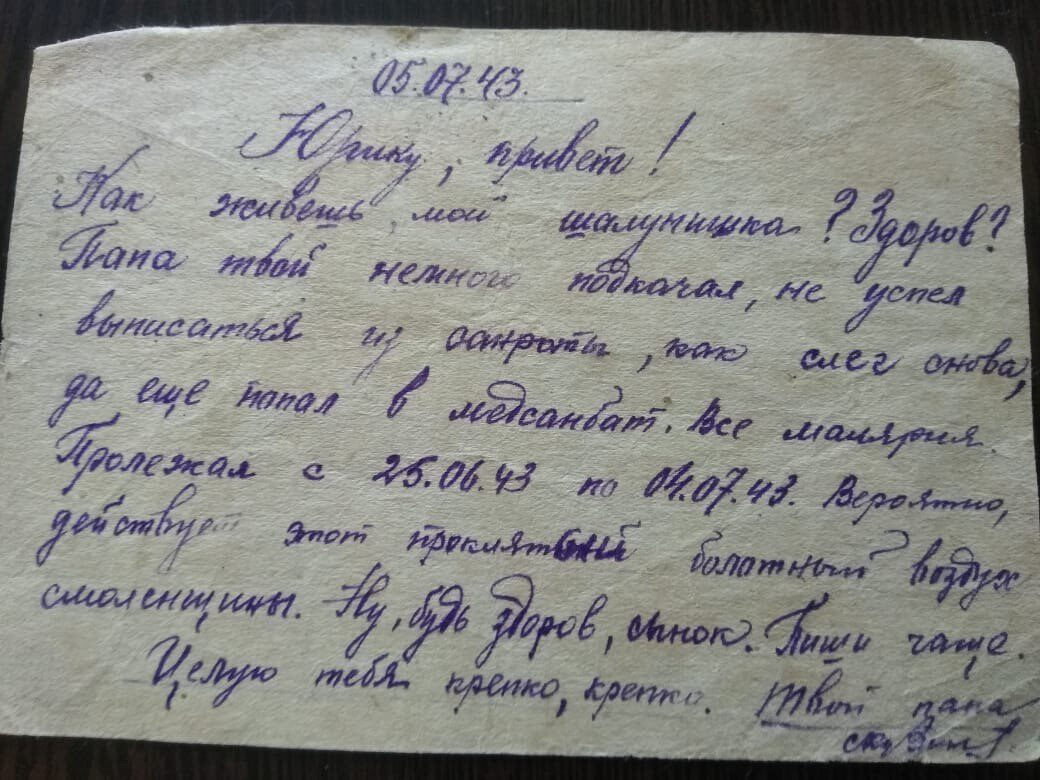 05.07.43.
Юрику, привет!
Как живешь, мой шалунишка? Здоров?
Папа твой немного подкачал, не успел
выписаться из санроты, как слег снова,
да еще попал в медсанбат. Все малярия.
Пролежал с 25.06.43 по 04.07.43. Вероятно,
действует этот проклятый болотный воздух
смоленщины. Ну, будь здоров, сынок. Пиши чаще.
Целую тебя крепко, крепко. Твой папа